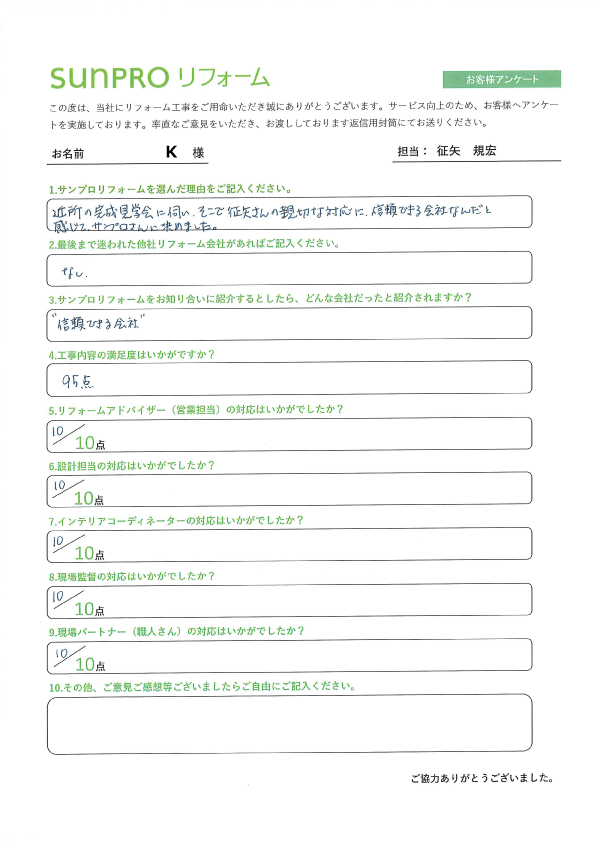 SUNPRO リフォーム
お客様アンケート
この度は、当社にリフォーム工事をご用命いただき誠にありがとうございます。サービス向上のため、お客様へアンケー
トを実施しております。率直なご意見をいただき、お渡ししております返信用封筒にてお送りください。
お名前 K 様
担当： 征矢 規宏
1.サンプロリフォームを選んだ理由をご記入ください。
近所の完成見学会に伺い、そこで征矢さんの親切な対応に、信頼できる会社なんだと
感じて、サンプロさんに決めました。
2.最後まで迷われた他社リフォーム会社があればご記入ください。
なし.
3.サンプロリフォームをお知り合いに紹介するとしたら、どんな会社だったと紹介されますか？
"信頼できる会社"
4.工事内容の満足度はいかがですか？
95点
5.リフォームアドバイザー（営業担当）の対応はいかがでしたか？
10/10点
6.設計担当の対応はいかがでしたか？
10/10点
7.インテリアコーディネーターの対応はいかがでしたか？
10/10点
8.現場監督の対応はいかがでしたか？
10/10点
9.現場パートナー（職人さん）の対応はいかがでしたか？
10/10点
10.その他、ご意見ご感想等ございましたらご自由にご記入ください。
ご協力ありがとうございました。